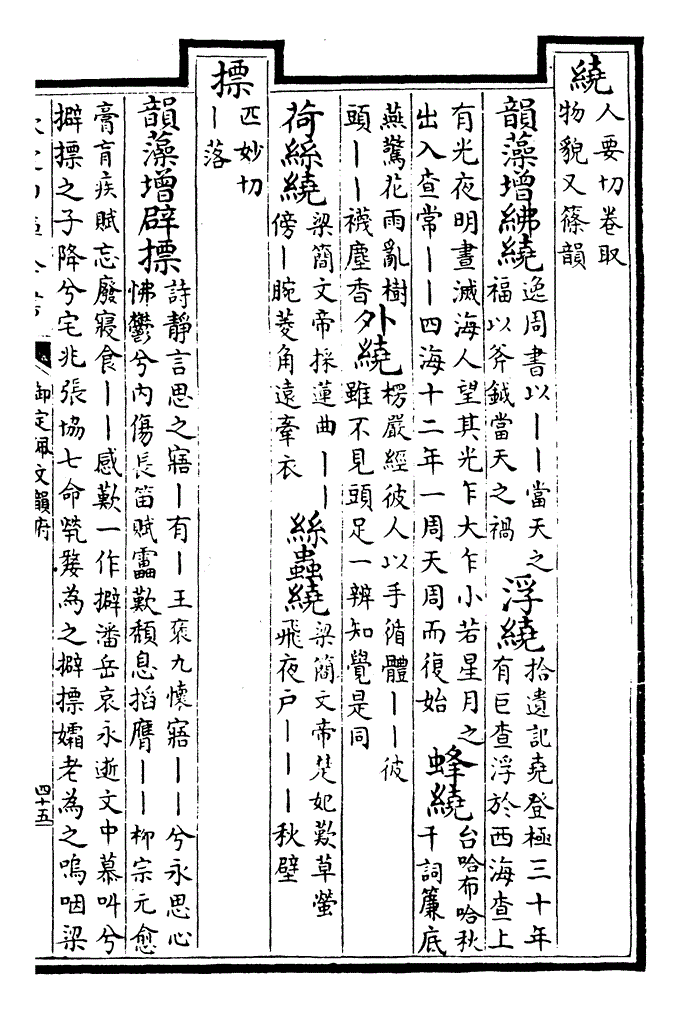 繞
人要切卷取
物貌又篠韻
韻藻增紼繞
逸周書以丨丨當天之
福以斧鉞當天之禍
浮繞
拾遺記堯登極三十年
有巨查浮於西海查上
有光夜明晝滅海人望其光乍大乍小若星月之
出入查常丨丨四海十二年一周天周而復始
蜂繞
台哈布哈秋
千詞簾底
燕驚花雨亂樹
頭丨丨襪塵香夕
外繞
楞嚴經彼人以手循體丨丨彼
雖不見頭足一辨知覺是同
荷絲繞
梁簡文帝採蓮曲丨丨
傍丨腕菱角遠牽衣
絲蟲繞
梁簡文帝楚妃歎草螢
飛夜戶丨丨丨秋壁
摽
匹妙切
丨落
韻藻增辟摽
詩靜言思之寤丨有丨王褒九懷寤丨丨兮永思心
怫鬱兮內傷長笛賦靁歎頽息搯膺丨丨柳宗元愈
膏肓疾賦忘廢寢食丨丨感歎一作擗潘岳哀永逝文中慕叫兮
擗摽之子降兮宅兆張協七命煢嫠為之擗摽孀老為之嗚咽梁
御定佩文韻府
四十五